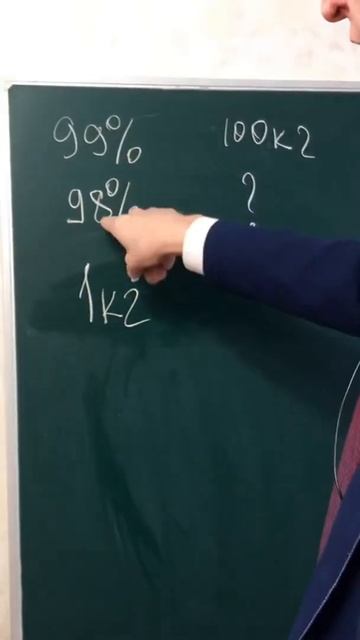 99% 100кг
98% ?
1кг